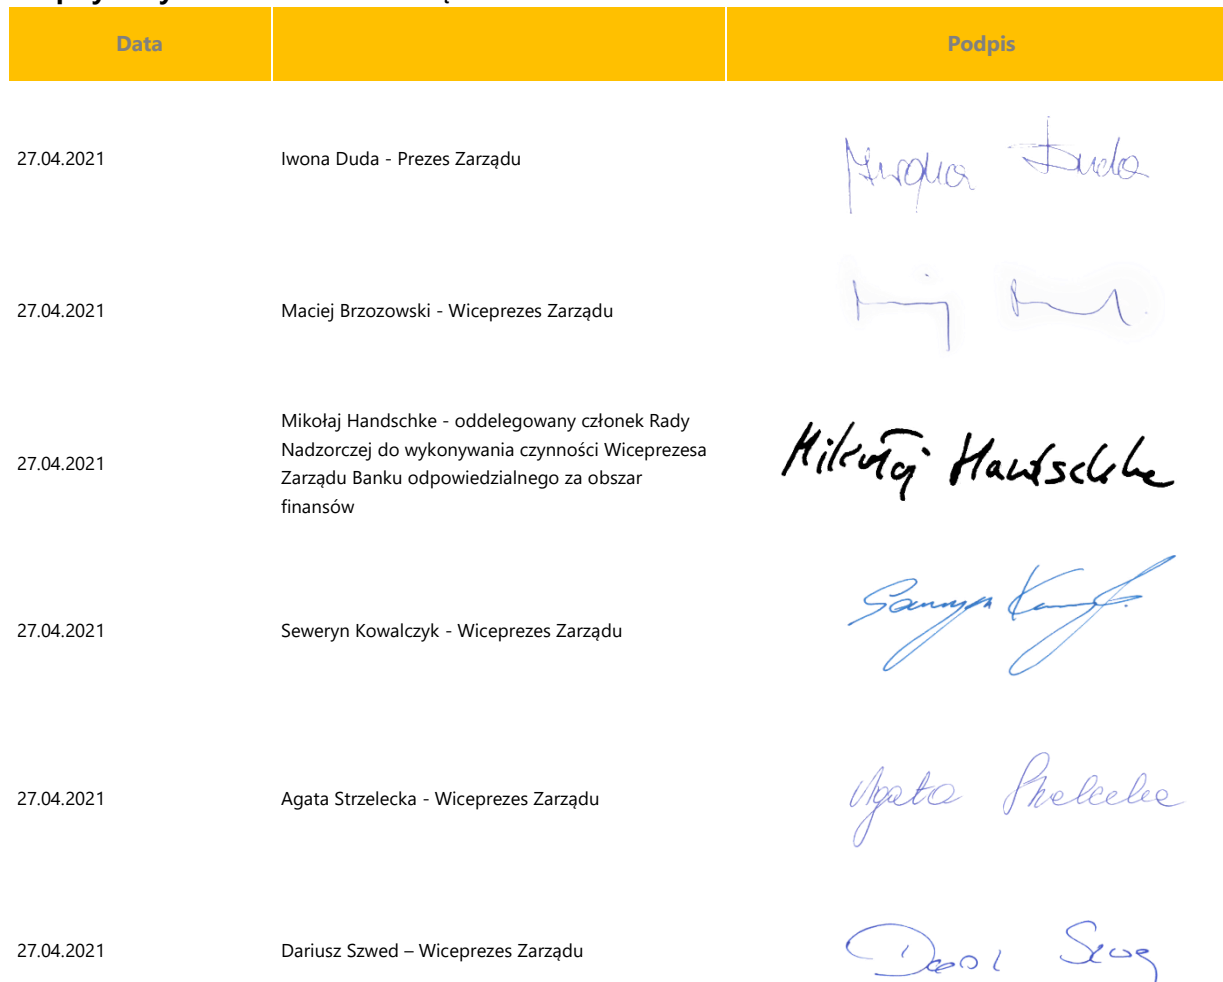 Data Podpis
27.04.2021 Iwona Duda - Prezes Zarządu Iwona Duda
27.04.2021 Maciej Brzozowski - Wiceprezes Zarządu
Mikołaj Handschke - oddelegowany członek Rady
Nadzorczej do wykonywania czynności Wiceprezesa
27.04.2021 Zarządu Banku odpowiedzialnego za obszar Mikołaj Handschke
finansów
27.04.2021 Seweryn Kowalczyk - Wiceprezes Zarządu
27.04.2021 Agata Strzelecka - Wiceprezes Zarządu Agata Strzelecka
27.04.2021 Dariusz Szwed – Wiceprezes Zarządu